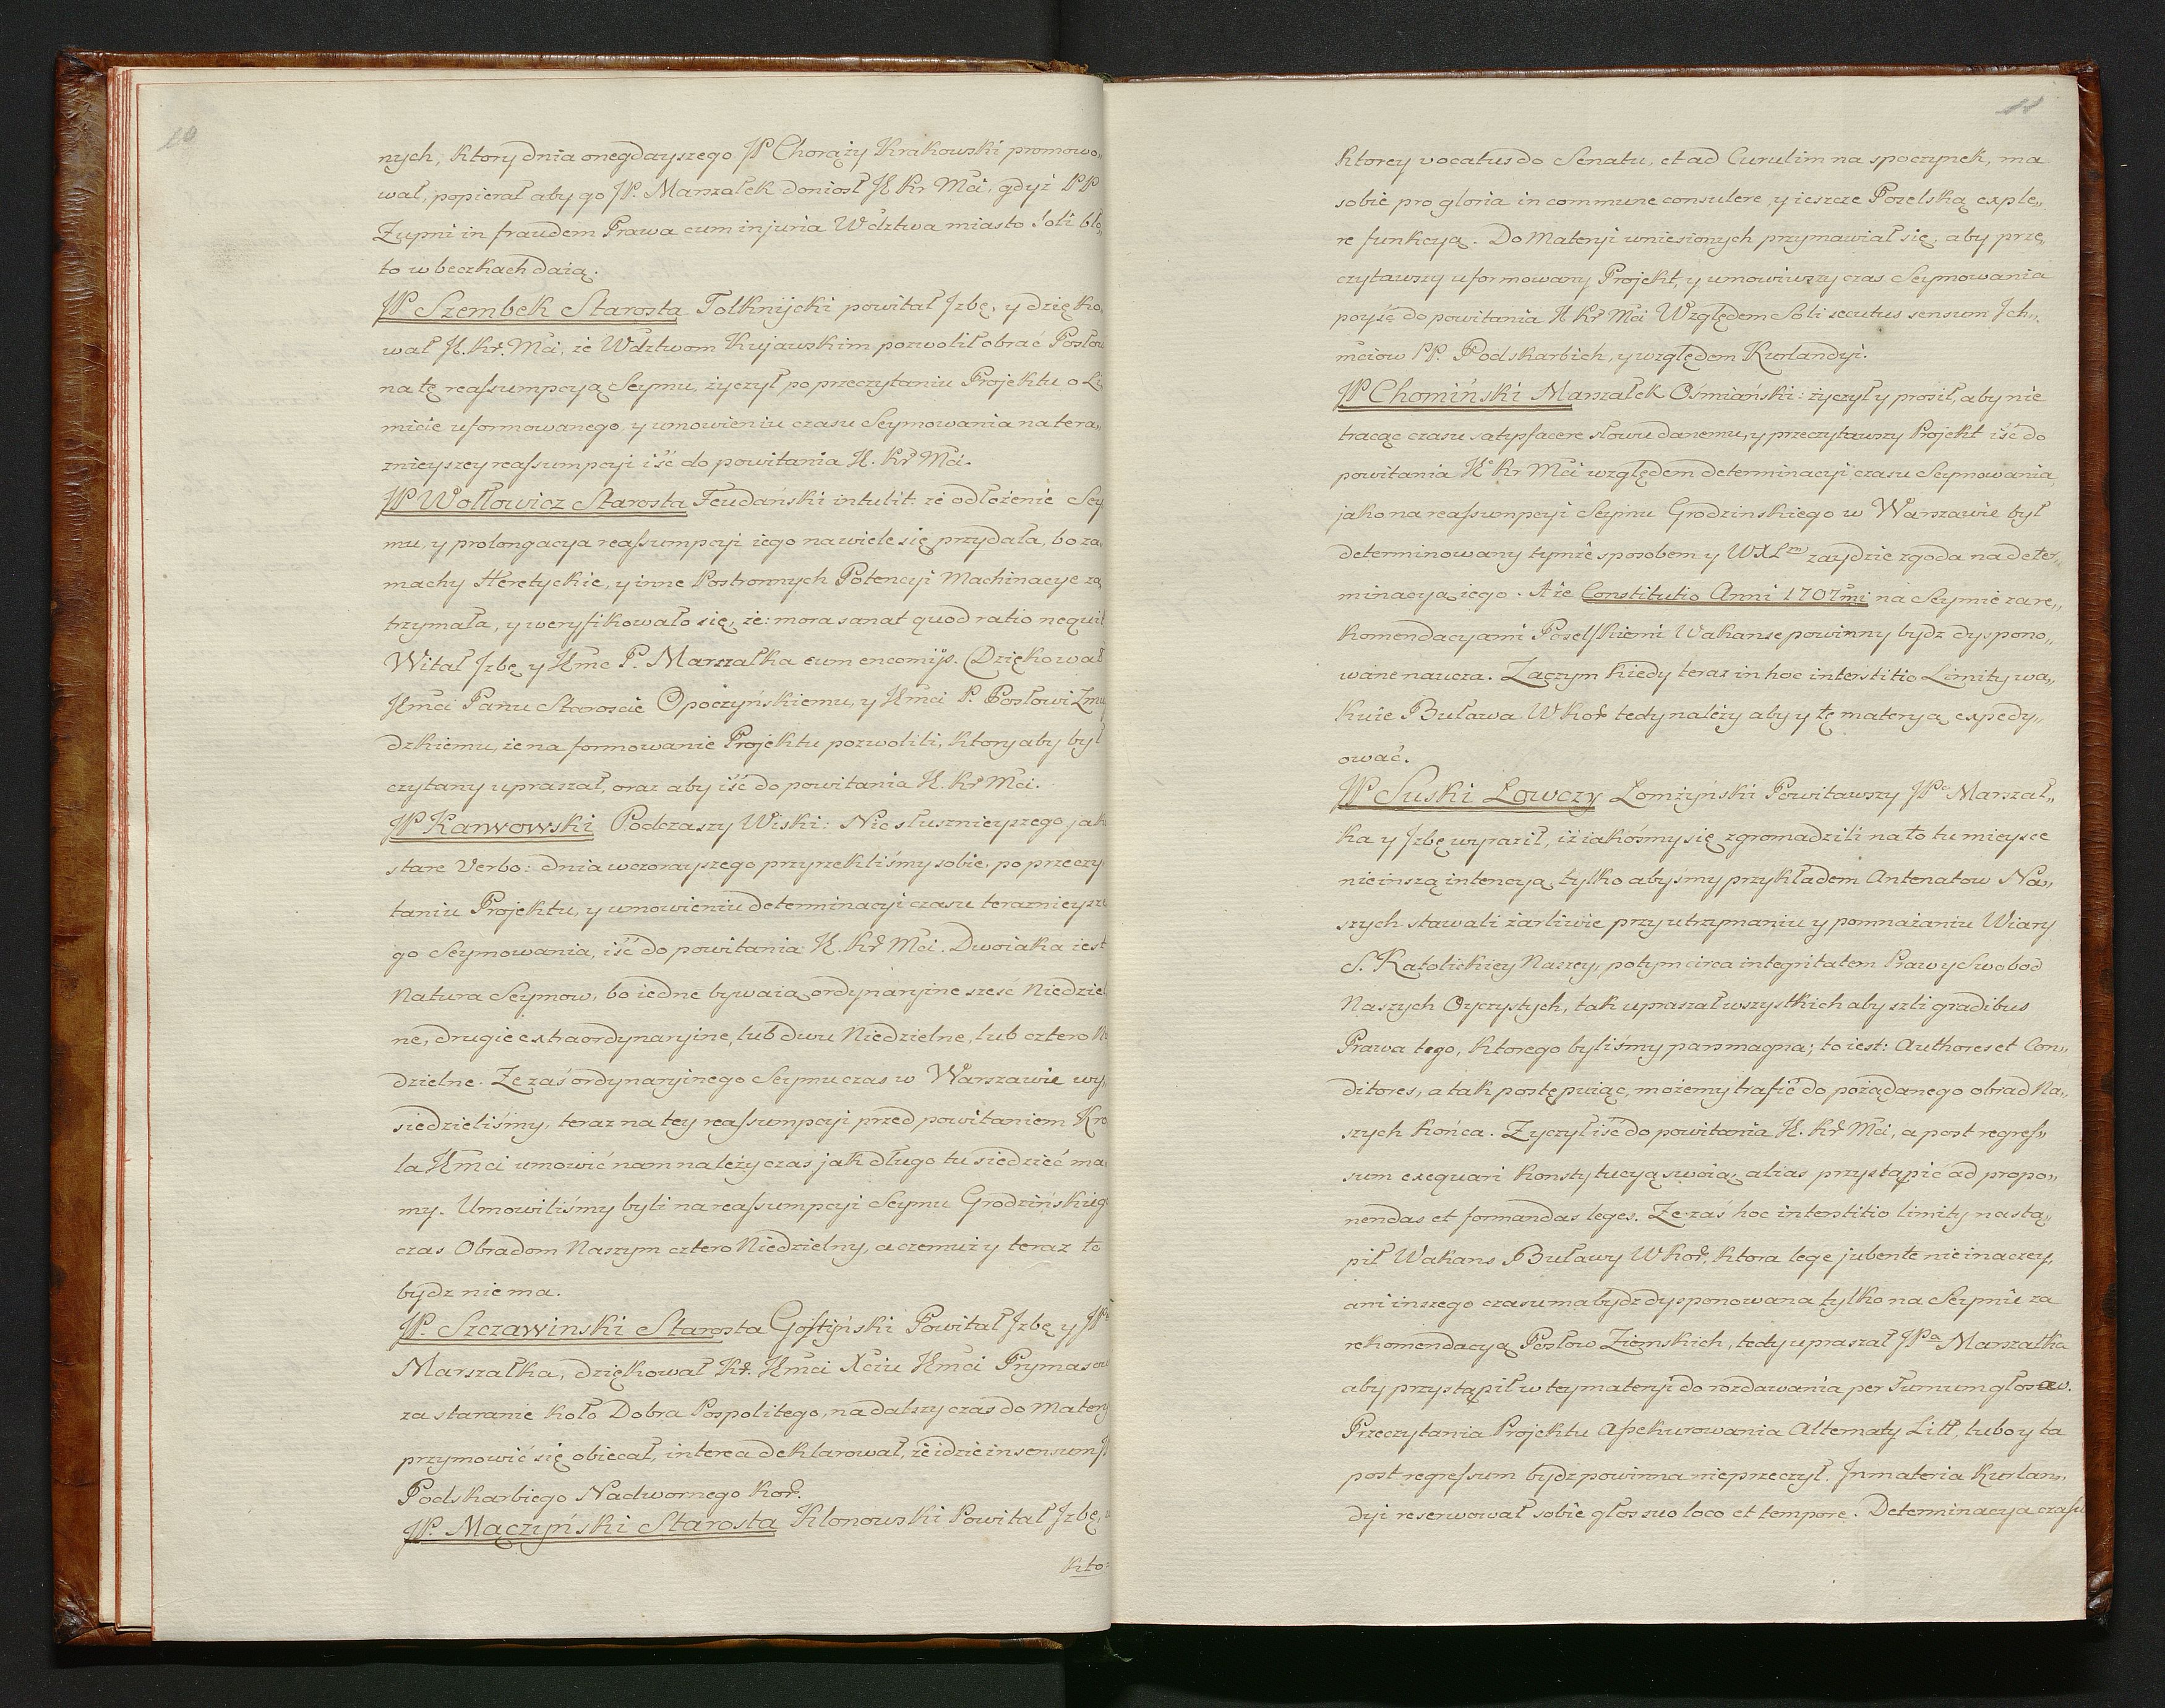 10
nych, ktory dnia onegdayszego JP Chorąży Krakowski promowo„
wał, popierał aby go JP. Marszałek doniosł JK Kr Mci, gdyż PP
Zupni in fraudem Prawa cum injuria Wdztwa miasto soli bło„
to w beczkach daią.
JP. Szembek Starosta Tolknijcki powitał Jzbę, y dzięko„
wał JK. Kr. Mci, że Wdztwom Kujawskim pozwolił obrać Posłow
na tę reassumpcyą Seymu, życzył po przeczytaniu Projektu o Li
micie uformowanego, y umowieniu czasu Seymowania na tera„
znieyszey reassumpcyi iść do powitania JK. Kr Mci.
JP Wołłowicz Starosta Feudański intulit: że odłożenie Sey
mu, y prolongacya reassumpcyi iego na wiele się przydała, bo za„
machy Heretyckie, y inne Postronnych Potencyi Machinacye za
trzymała, y weryfikowało się, że: mora sanat quod ratio nequit
Witał Jzbę y Jmc P. Marszałka cum encomijs. Dziękował
Jmci Panu Staroscie Opoczyńskiemu, y Jmci P. Posłowi Zmu
dzkiemu, że na formowanie Projektu pozwolili, ktory aby był
czytany upraszał, oraz aby iść do powitania JK. Kr Mci.
JP Karwowski Podczaszy Wiski: Nic słusznieyszego jak
stare Verbo: dnia wczorayszego przyrzekliśmy sobie, po przeczy
taniu Projektu, y umowieniu determinacyi czasu terazniey sze
go Seymowania, iść do powitania JK. Kr Mci. Dwoiaka iest
Natura Seymow, bo iedne bywaią ordynaryine szesc Niedziel
ne, drugie extraordynaryine, lub dwu Niedzielne, lub cztero Nie
dzielne. Ze zaś ordynaryinego Seymu czas w Warszawie wy„
siedzieliśmy, teraz na tey reassumpcyi przed powitaniem Kro
la Jmci umowić nam należy czas jak długo tu siedzieć ma„
my. Umowiliśmy byli na reassumpcyi Seymu Grodzińskiego
czas Obradom Naszym cztero Niedzielny, a czemuż y teraz to
bydz nie ma.
JP. Szczawinski Starosta Gostyński Powitał Jzbę y JPa
Marszałka, dziękował Kr. Jmci Xciu Jmci Prymasow
za staranie koło Dobra Pospolitego, na dalszy czas do Matery
przymowić się obiecał, interea deklarował, że idzie in sensum J
Podskarbiego Nadwornego Kor.
JP. Mączyński Starosta Klonowski Powitał Jzbę,
kto=
11
ktorey vocatus do Senatu, et ad Curulim na spoczynek, ma
sobie pro gloria in commune consulere, y ieszcze Pozelską exple„
re funkcyą. Do Materyi wniesionych przymawiał się, aby prze„
czytawszy uformowany Projekt, y umowiwszy czas Seymowania
poyść do powitania JK Kr Mci Względem Soli secutus sensum Ich„
mciow PP. Podskarbich, y względem Kurlandyi.
JP Chomiński Marszałek Ośmiański: życzył y prosił, aby nie
tracąc czasu satysfacere słowu danemu, y przeczytawszy Projekt iść do
powitania JK Kr Mci względem determinacyi czasu Seymowania,
jako na reassumpcyi Seymu Grodzinskiego w Warszawie był
determinowany tymże sposobem y WXLm zaydzie zgoda na deter„
minacyą iego. A że Constitutio Anni 1707mi na Seymie za re„
komendacyami Poselskiemi Wakanse powinny bydz dyspono„
wane naucza. Zaczym kiedy teraz in hoc interstitio Limity wa„
kuie Buława WKor tedy należy aby y tę materyą expedy„
ować.
JP Suski Łowczy Łomżyński Powitawszy JPa Marszał„
ka y Jzbę wyraził, iż iakośmy się zgromadzili na to tu mieysce
nie inszą intencyą, tylko abyśmy przykładem Antenatow Na„
szych stawali żarliwie przy utrzymaniu y pomnażaniu Wiary
S. Katolickiey Naszey, potym circa integritatem Praw y Swobod
Naszych Oyczystych, tak upraszał wszystkich aby szli gradibus
Prawa tego, ktorego byliśmy pars magna; to iest: Authores et Con„
ditores, a tak postępuiąc, możemy trafić do pożądanego obrad Na„
szych końca. Zyczył iść do powitania JK. Kr Mci, a post regres„
sum exequari konstytucyą swoią, alias przystąpić ad propo„
nendas et formandas leges. Ze zaś hoc interstitio limity nastą„
pił Wakans Buławy WKor, ktora lege jubente nie inaczey,
ani inszego czasu ma bydz dysponowana tylko na Seymie za
rekomendacyą Posłow Ziemskich, tedy upraszał JPa Marszałka
aby przystąpił w tey materyi do rozdawania per turnum głosow.
Przeczytania Projektu Assekurowania Alternaty Litt, lubo y ta
post regressum bydz powinna nie przeczył. In materia Kurlan„
dyi reserwował sobie głos suo loco et tempore. Determinacya czasu